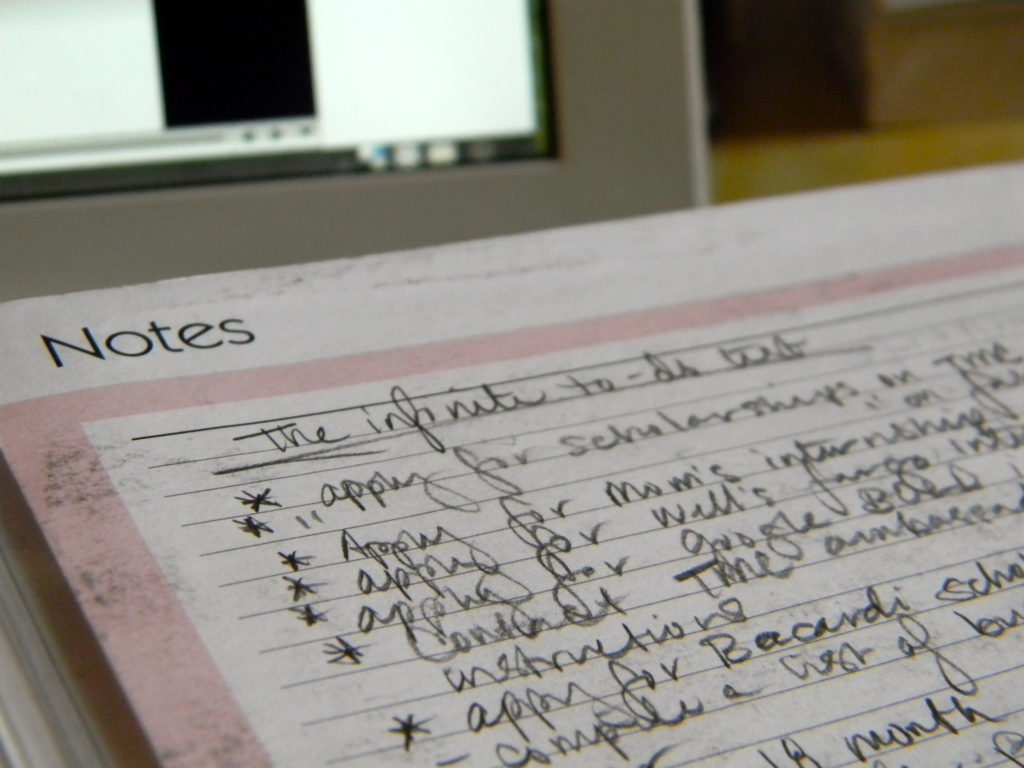 Notes
The infinite to-do list
* apply for scholarships, on TME
* " " on
* Apply for mom's internship
* apply for Well's fargo
* apply for google BOLD
* Contact TME ambassad
instructions
* apply for Bacardi scho
- compile a list of
18 month